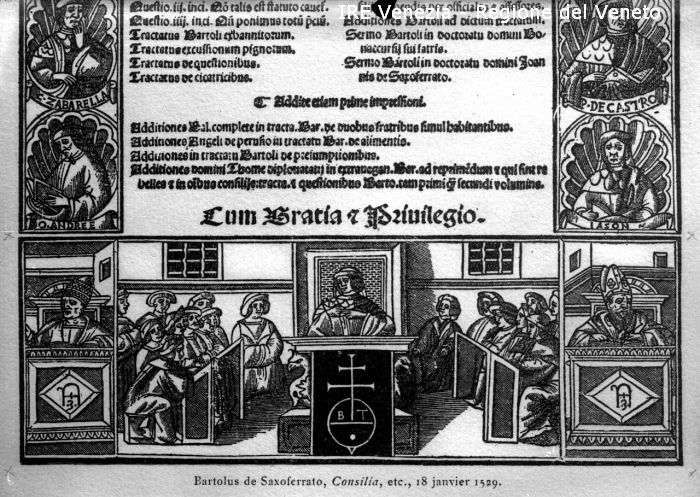 IRE Venezia - Regione del Veneto
Questio. iij. inci. Nũ talis est statuto cauet.
Questio. iiij. inci. Nũ ponimus totũ pciũ.
Tractatus Bartoli exbannitorum.
Tractatus excussionum pignorum.
Tractatus de questionibus.
Tractatus de cicatricibus.
Additiones Bartoli ad dictum tractatum.
Sermo Bartoli in doctoratu domini Bo-
naccursij sui fratris.
Sermo Bartoli in doctoratu domini Joan
nis de Saxoferrato.
Addite etiam prime impressioni.
Additiones Bal. complete in tracta. Bar. de duobus fratribus simul habitantibus.
Additiones Angeli de perusio in tractatu Bar. de alimentis.
Additiones in tractatu Bartoli de presumptionibus.
Additiones domini Thome diplouatatij in extrauagan. Bar. ad reprimẽdum ⁊ qui sint re
belles ⁊ in oĩbus consilijs: tracta. ⁊ questionibus Barto. tam primi q̃ȝ secundi voluminis.
Cum Gratia ⁊ Priuilegio.
F. ZABARELLA
P. DE CASTRO
IO. ANDREE
IASON
B T
Bartolus de Saxoferrato, Consilia, etc., 18 janvier 1529.